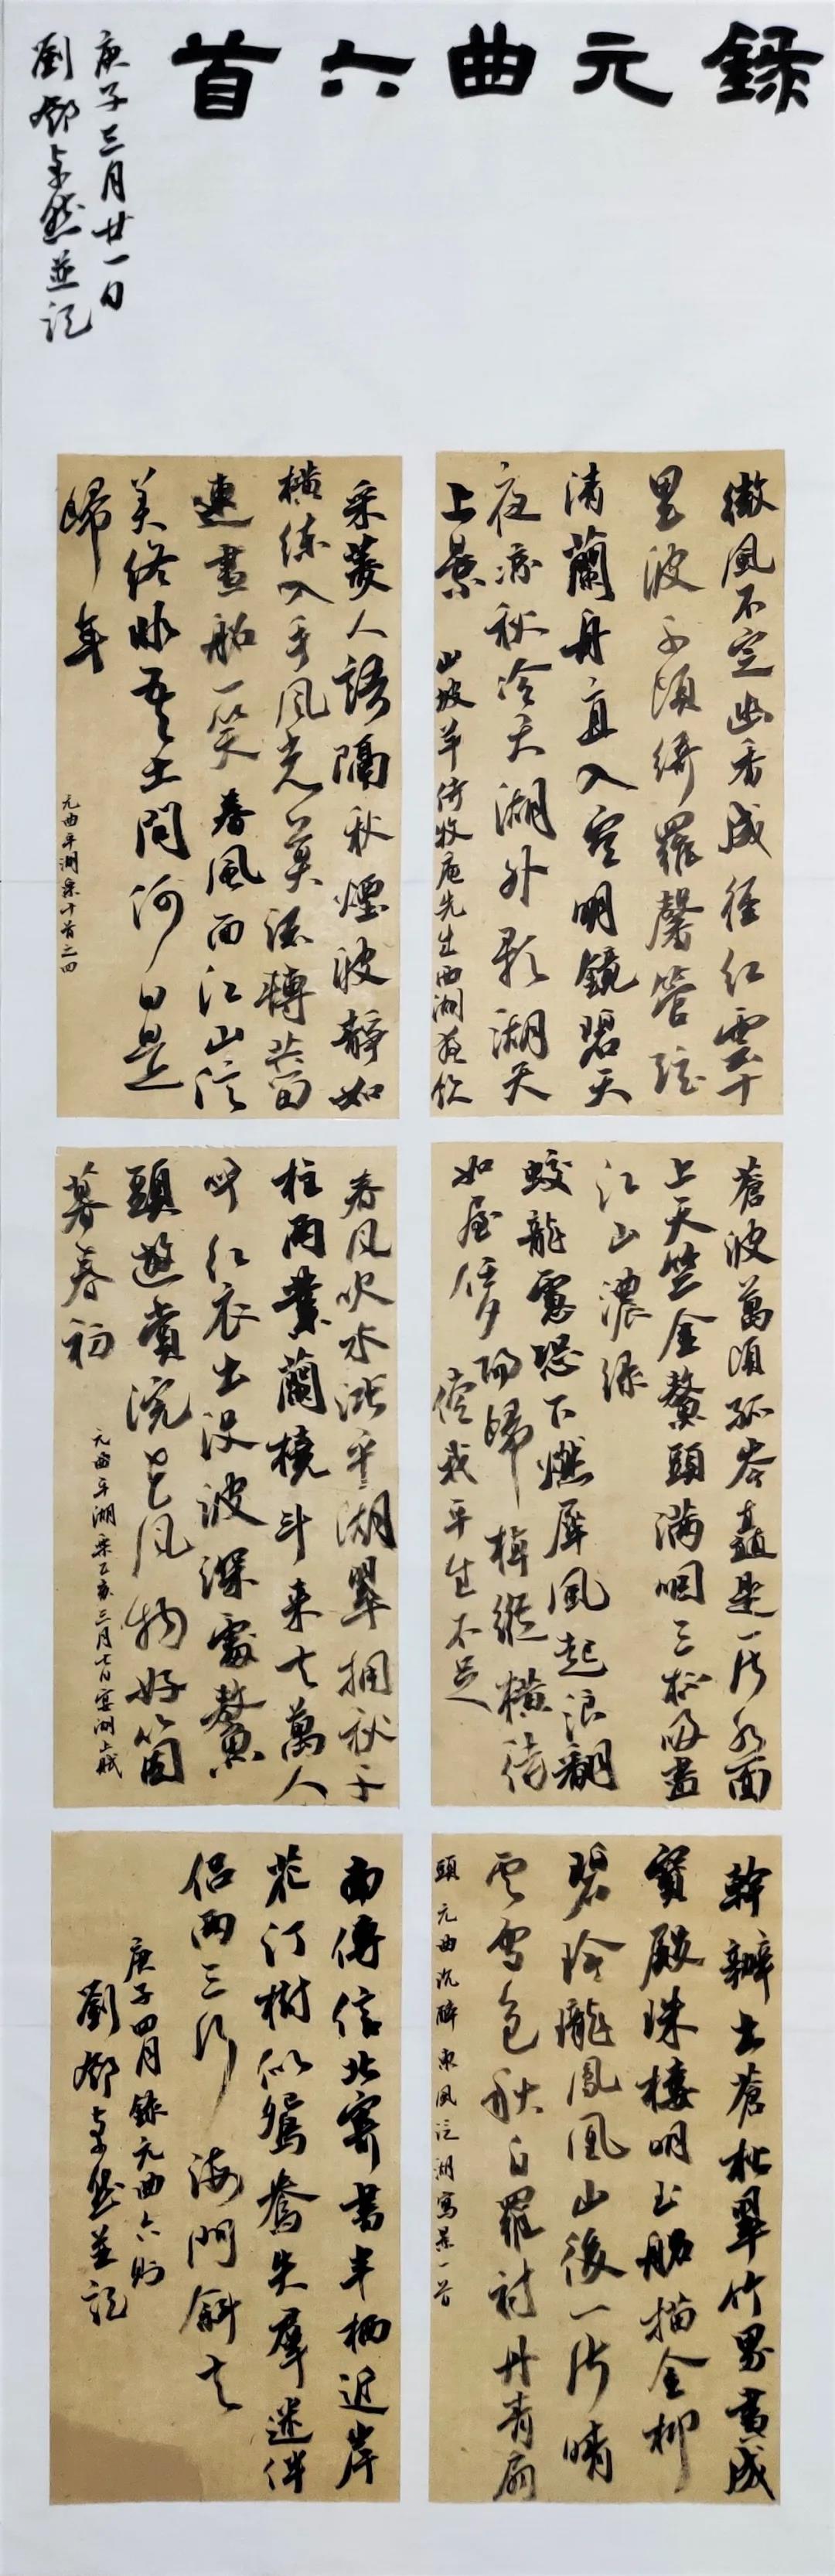 錄元曲六首
庚子三月廿一日
劉鄧並記
微風不定幽香成徑紅雲十
里波千頃綺羅馨管弦
清蘭舟直入空明鏡碧天
夜涼秋冷天湖外影湖天
上景
山坡羊侍牧庵先生西湖夜飲
采菱人語隔秋煙波靜如
橫練入手風光莫流轉共留
連畫船一笑春風面江山信
美終非吾土問何日是
歸年
元曲平湖樂十首之四
蒼波萬頃孤岑矗是一片水面
上天竺金鰲頭滿咽三杯吸盡
江山濃綠
蛟龍慮恐下燃犀風起浪翻
如屋任夕陽歸棹縱橫待
償我平生不足
春風吹水漲平湖翠擁秋千
柱兩葉蘭橈斗來去萬人
呼紅衣出沒波深處鰲
頭遊賞浣花風物好箇
暮春初
元曲平湖樂乙亥三月七日宴湖上賦
幹辦出蒼松翠竹界畫成
寶殿珠樓明玉船描金柳
碧玲瓏鳳凰山後一片晴
雲雪色秋白羅襯丹青扇
頭
元曲沉醉東風泛湖寫景一首
南傳信北寄書半栖近岸
花汀樹似鴛鴦失群迷伴
侶兩三行海門斜去
庚子四月錄元曲六則
劉鄧並記